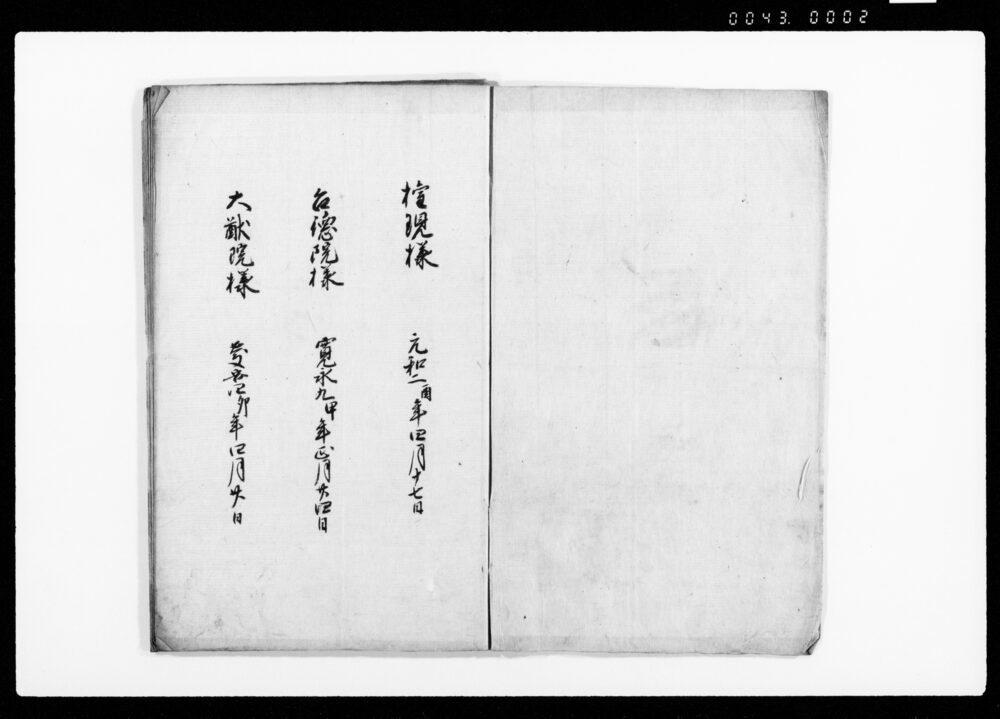 0043. 0002
権現様 元和二 年四月十七日
台徳院様 寛永九申年正月廿四日
大猷院様 慶安四卯年四月廿日